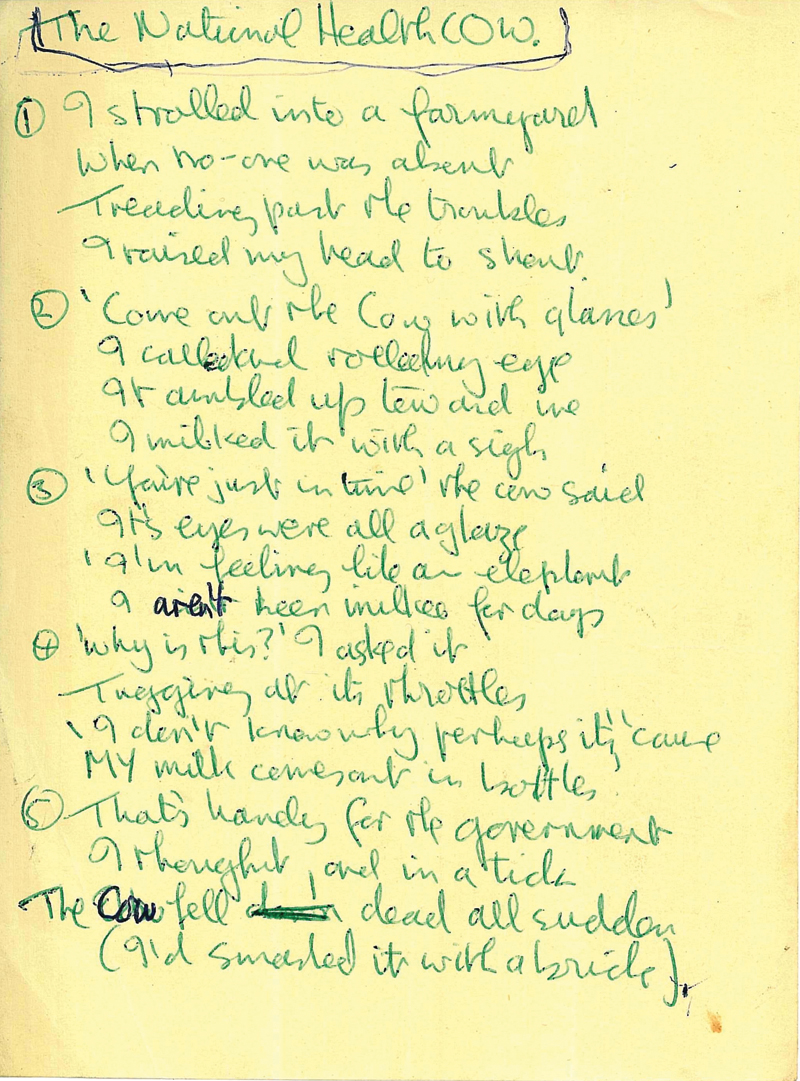 The National Health COW.
① I strolled into a farmyard
When no-one was absent
Treading past the troubles
I raised my head to shout.
② 'Come out the Cow with glasses'
I called and rolled my eye
It ambled up toward me
I milked it with a sigh
③ 'You're just in time' the cow said
It's eyes were all aglaze
'I'm feeling like an elephant
I aren't been milked for days
④ 'Why is this?' I asked it
Tugging at its throttles
'I don't know why perhaps it's 'cause
MY milk comes out in bottles
⑤ That's handy for the government
I thought, and in a tick
The Cow fell dead all sudden
(I'd smashed it with a brick).